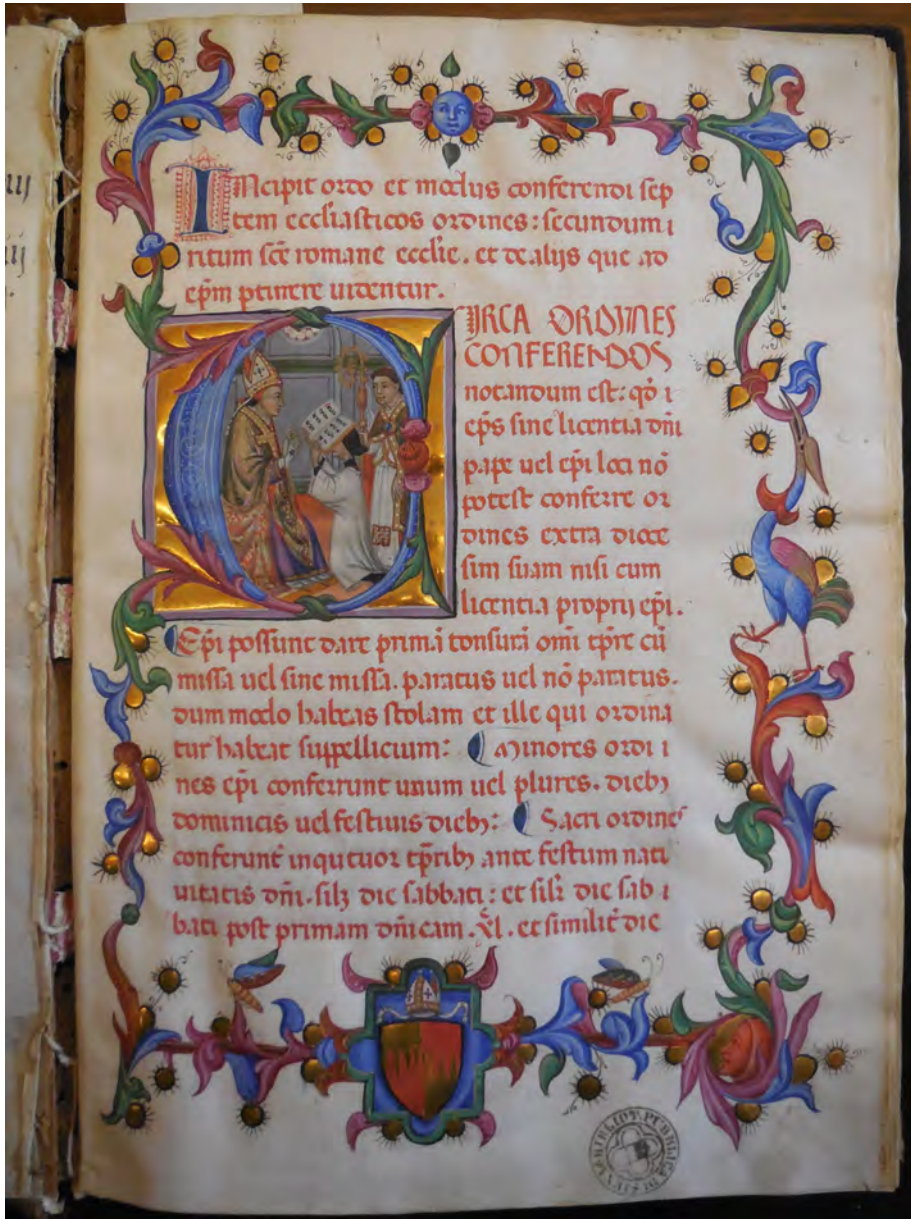 INcipit ordo et modus conferendi sep
tem eccliasticos ordines: secundum i
ritum scē romane ecclie. et de alijs que ad
ep̄m ptinere uidentur.
CIRCA ORDINES
CONFERENDOS
notandum est: qđ i
ep̄s sine licentia dn̄i
pape uel ep̄i loci nō
potest conferre or
dines extra dioce
sim suam nisi cum
licentia proprij ep̄i.
Ep̄i possunt dare primā tonsurā om̄i tp̄re cū
missa uel sine missa. paratus uel nō paratus.
dum modo habeas stolam et ille qui ordina
tur habeat suppellicium: Minores ordi i
nes ep̄i conferrunt unum uel plures. diebꝫ
dominicis uel festiuis diebꝫ: Sacri ordines
conferunt̄ in qutuor tp̄ribꝫ ante festum nati
uitatis dn̄i. silꝫ die sabbati: et sil̄r die sab i
bati post primam dn̄icam .xl. et similit̄ die
BIBLIOT. PUBBLICA DI SIENA